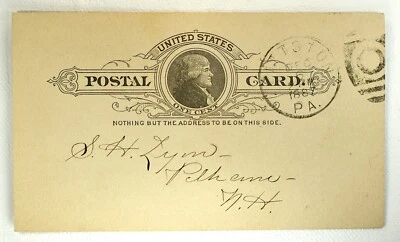 UNITED STATES
POSTAL CARD.
ONE CENT
NOTHING BUT THE ADDRESS TO BE ON THIS SIDE.
DEC
1887
PA.
S. H. Dyer
Pelham
N.H.